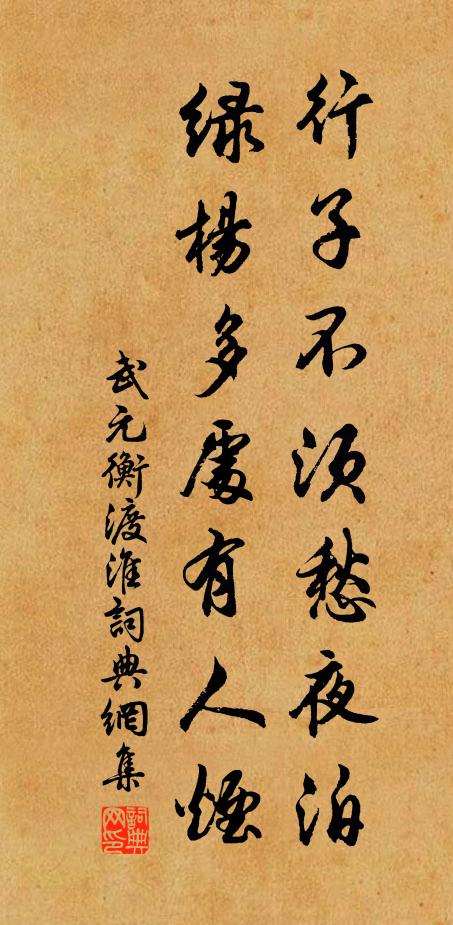 行子不須愁夜泊
緑楊多處有人煙
武元衡渡淮詞典網集
詞典網印